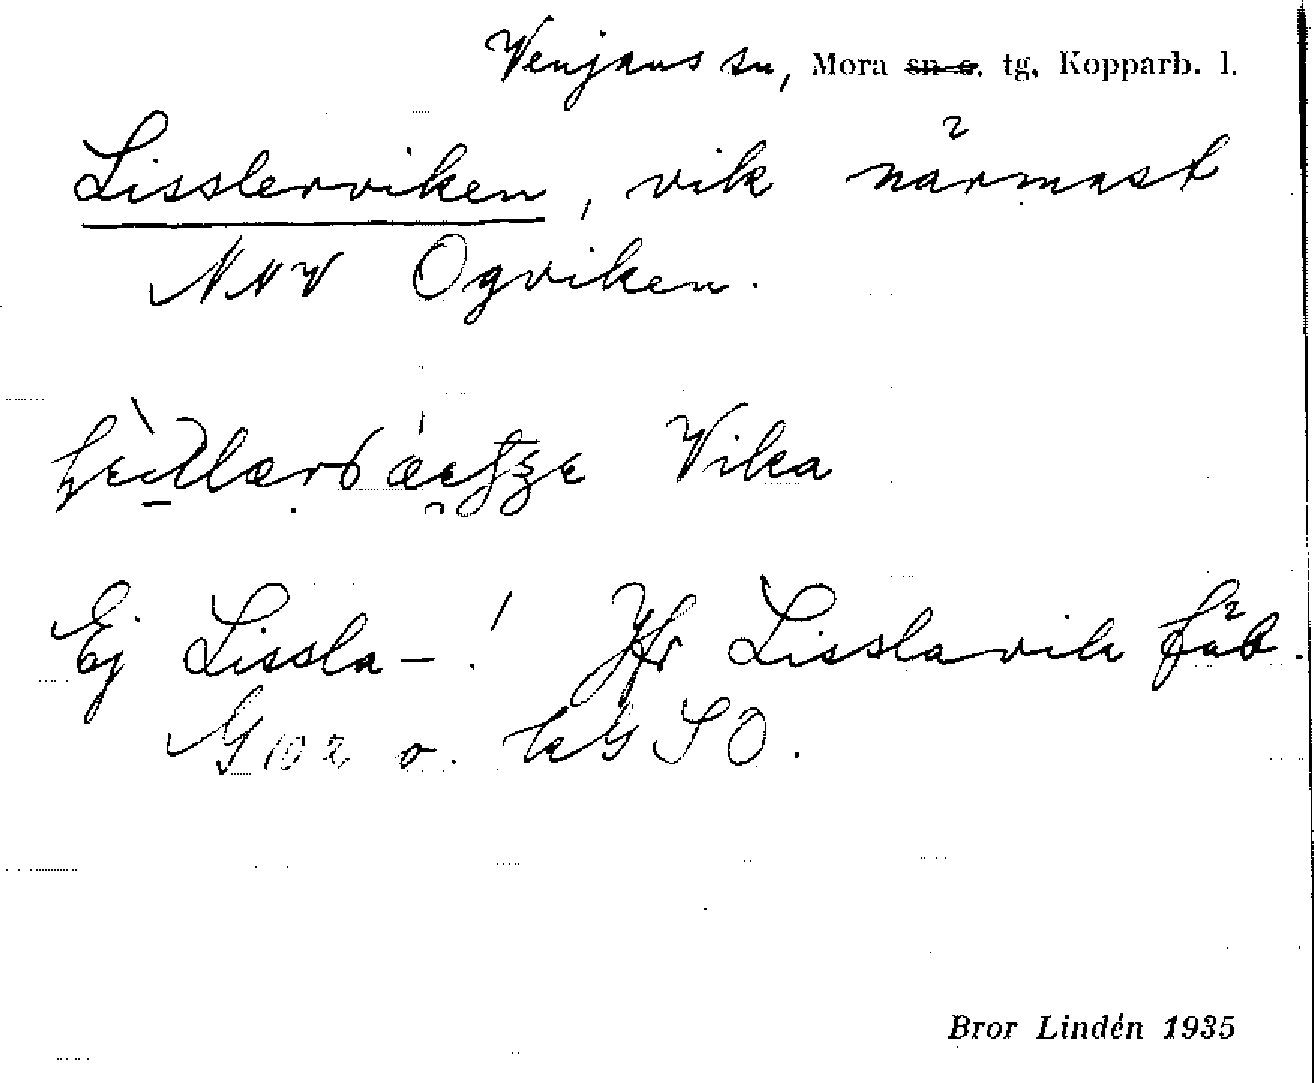 Venjans sn, Mora sn o. tg. Kopparb. l.
Lisslerviken, vik närmast
NNV Ogviken.
Vika
Ej Lissla-! Jfr Lisslavik fäb.
SO.
Bror Lindén 1935